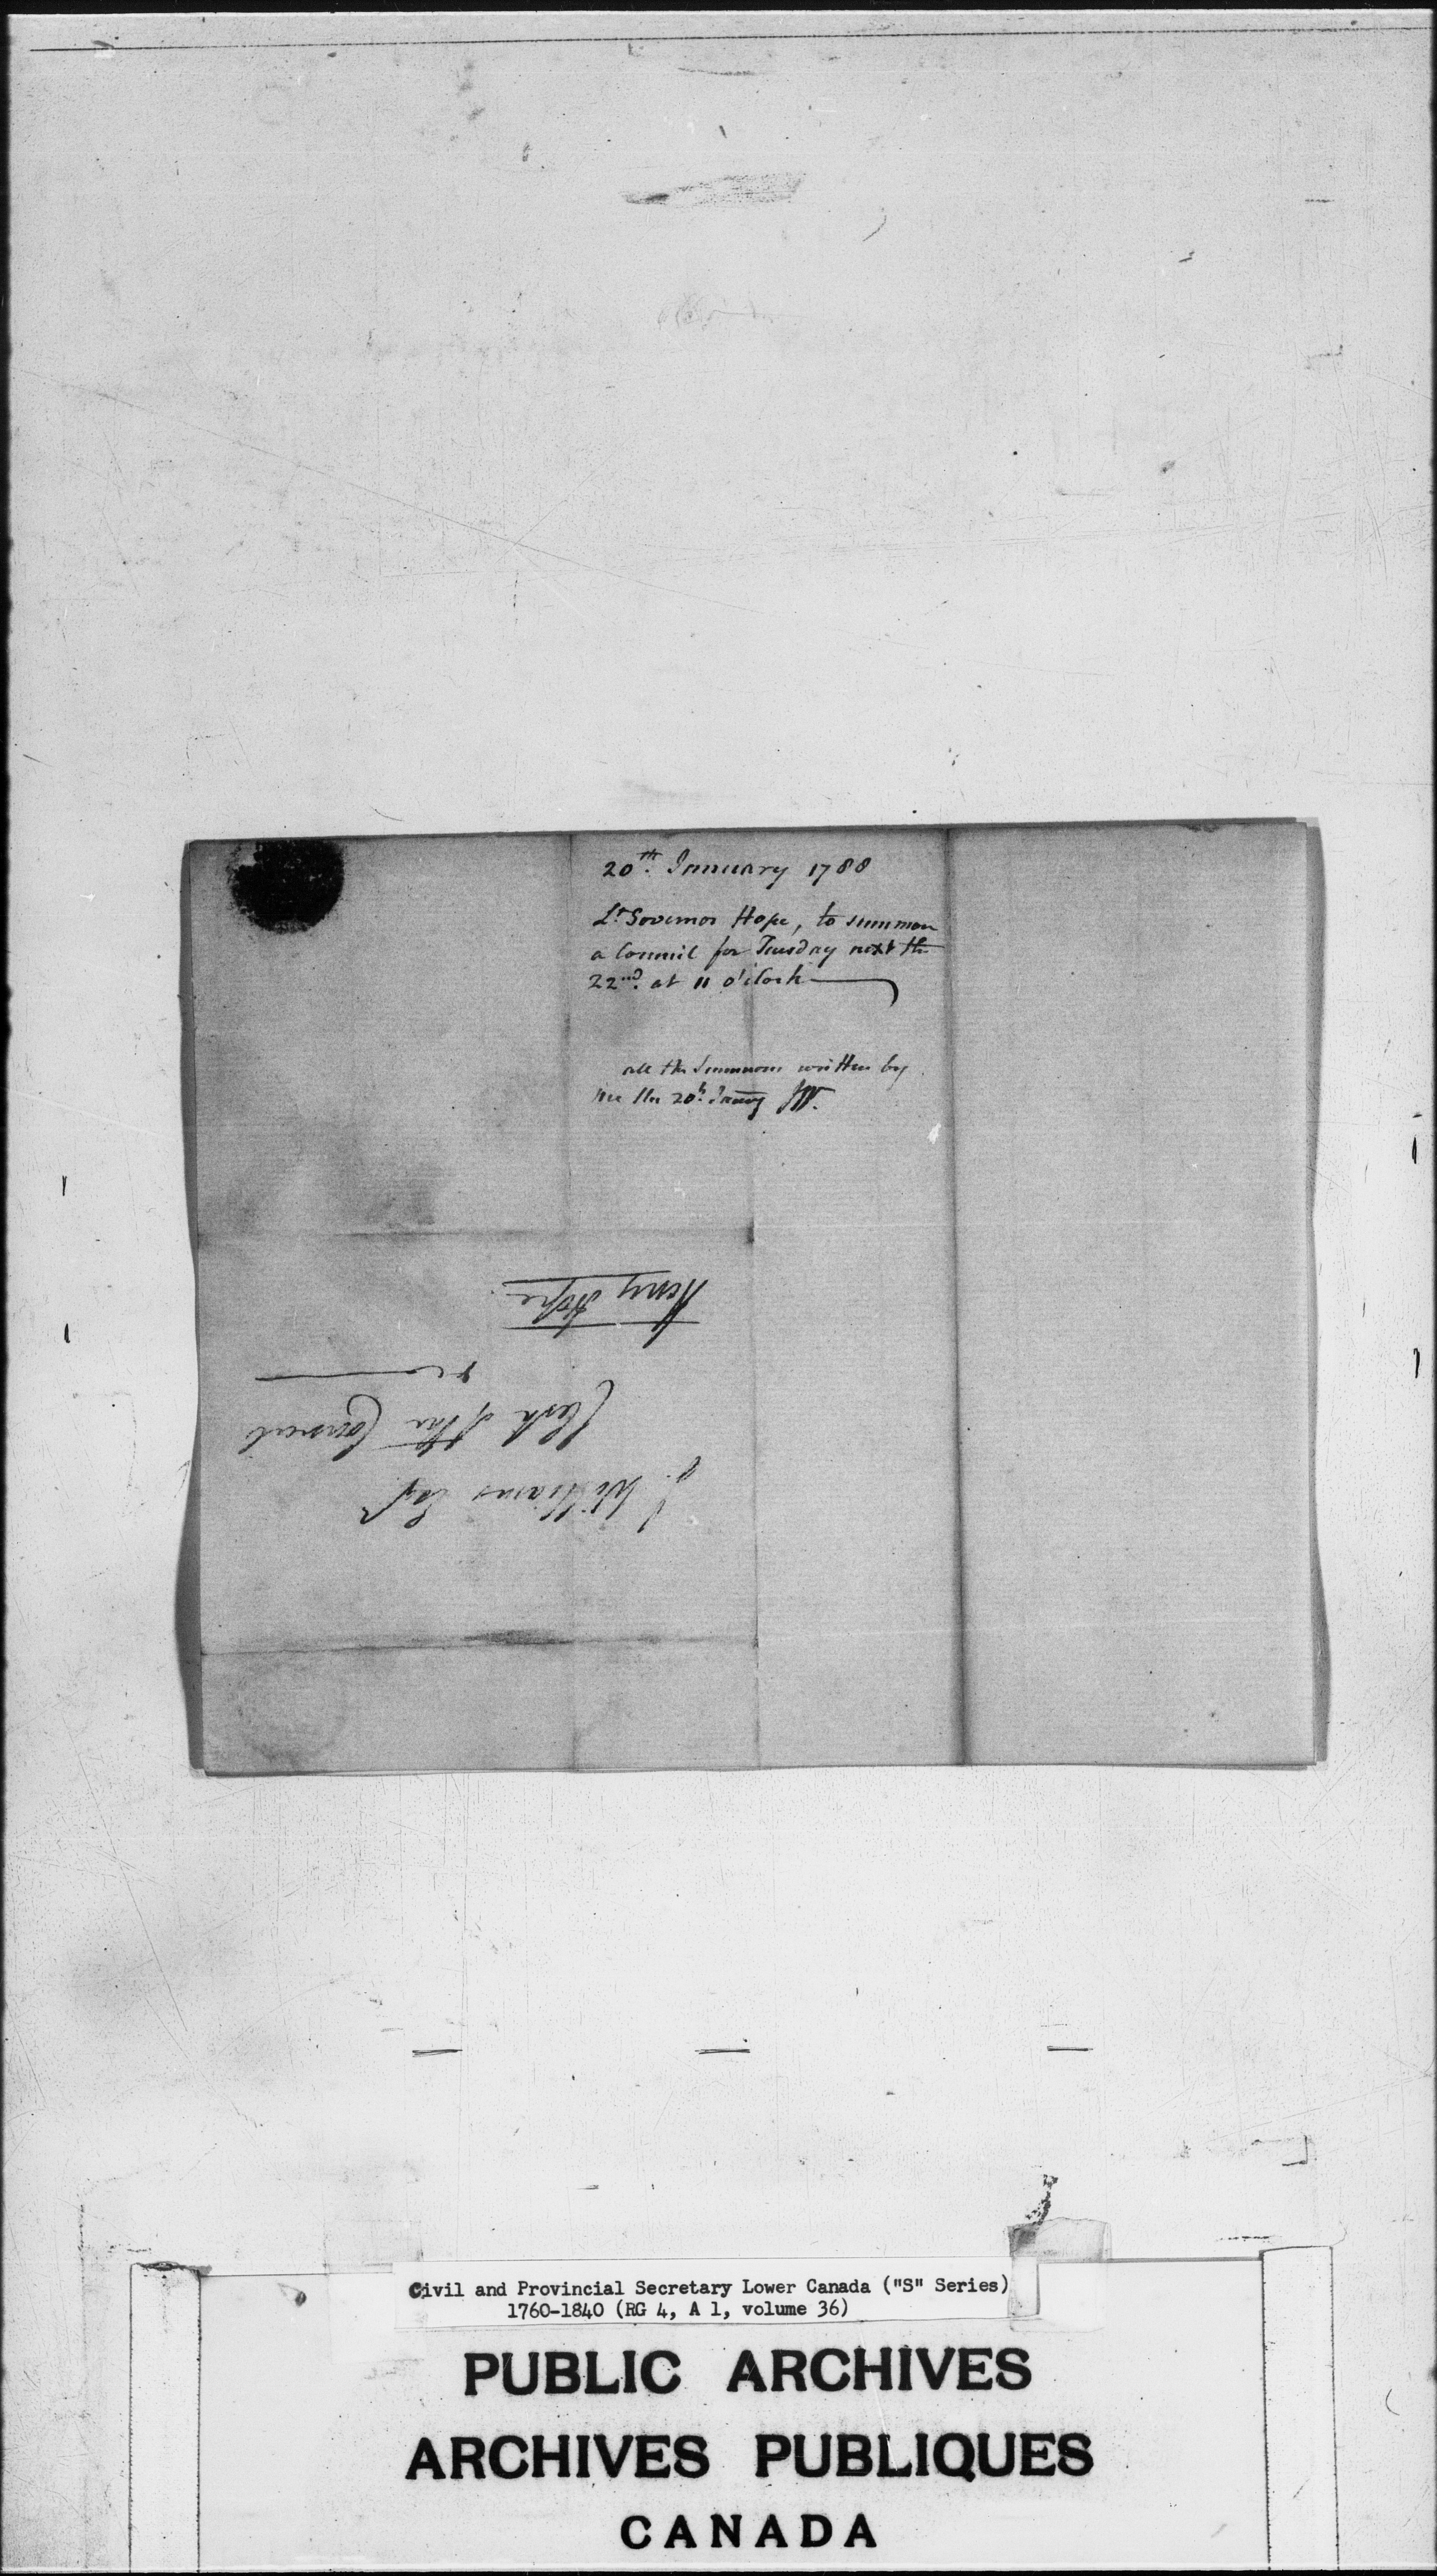 20th. January 1788
Lt Governor Hope, to summon
a Council for Tuesday next the
22nd. at 11 o'Clock
all the Summons written by
me the 20th. Janry JW.
J. Williams Esqr
Clerk of the Council
&c
Henry Hope
Civil and Provincial Secretary Lower Canada ("S" Series)
1760-1840 (RG 4, A 1, volume 36)
PUBLIC ARCHIVES
ARCHIVES PUBLIQUES
CANADA